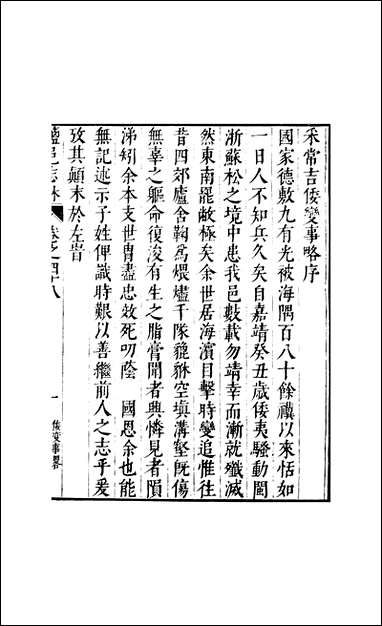 采常吉倭變事略序
國家德敷九有光被海隅百八十餘禩以來恬如
一日人不知兵久矣自嘉靖癸丑歲倭夷騷動閩
浙蘇松之境中患我邑數載勿靖幸而漸就殲滅
然東南罷敝極矣余世居海濱目擊時變追惟往
昔四郊廬舍鞠為煨燼千隊貔貅空填溝壑旣傷
無辜之軀命復浚有生之脂膏聞者興憐見者隕
涕矧余本支世冑盡忠效死叨蔭 國恩余也能
無記述示子姓俾識時艱以善繼前人之志乎爰
攷其顛末於左昔
鹽邑志林 卷之四十八
一 倭變事畧